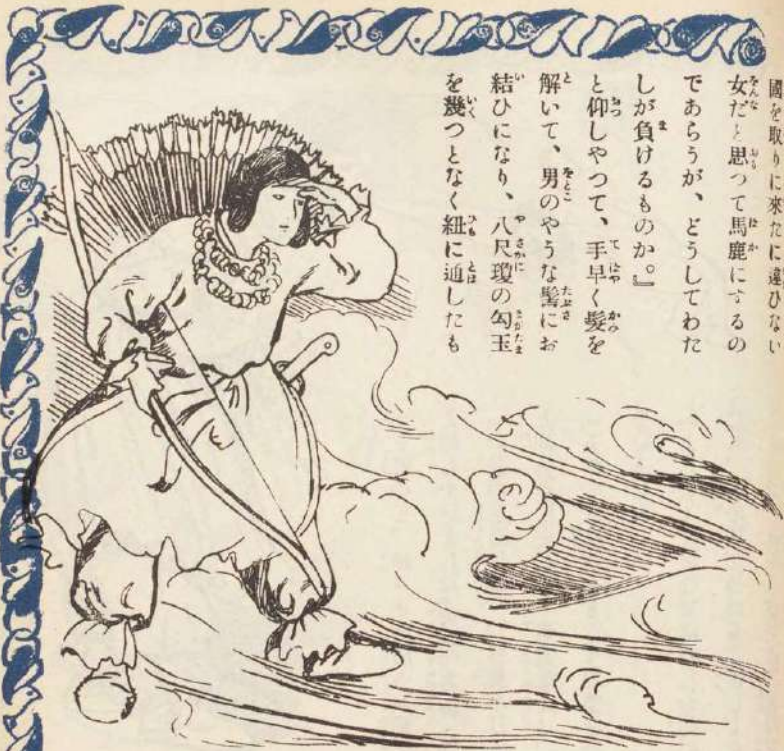 國を取りに來たに違ひない
女だと思つて馬鹿にするの
であらうが、どうしてわた
しが負けるものか。』
と仰しやつて、手早く髮を
解いて、男のやうな髻にお
結ひになり、八尺瓊の勾玉
を幾つとなく紐に通したも